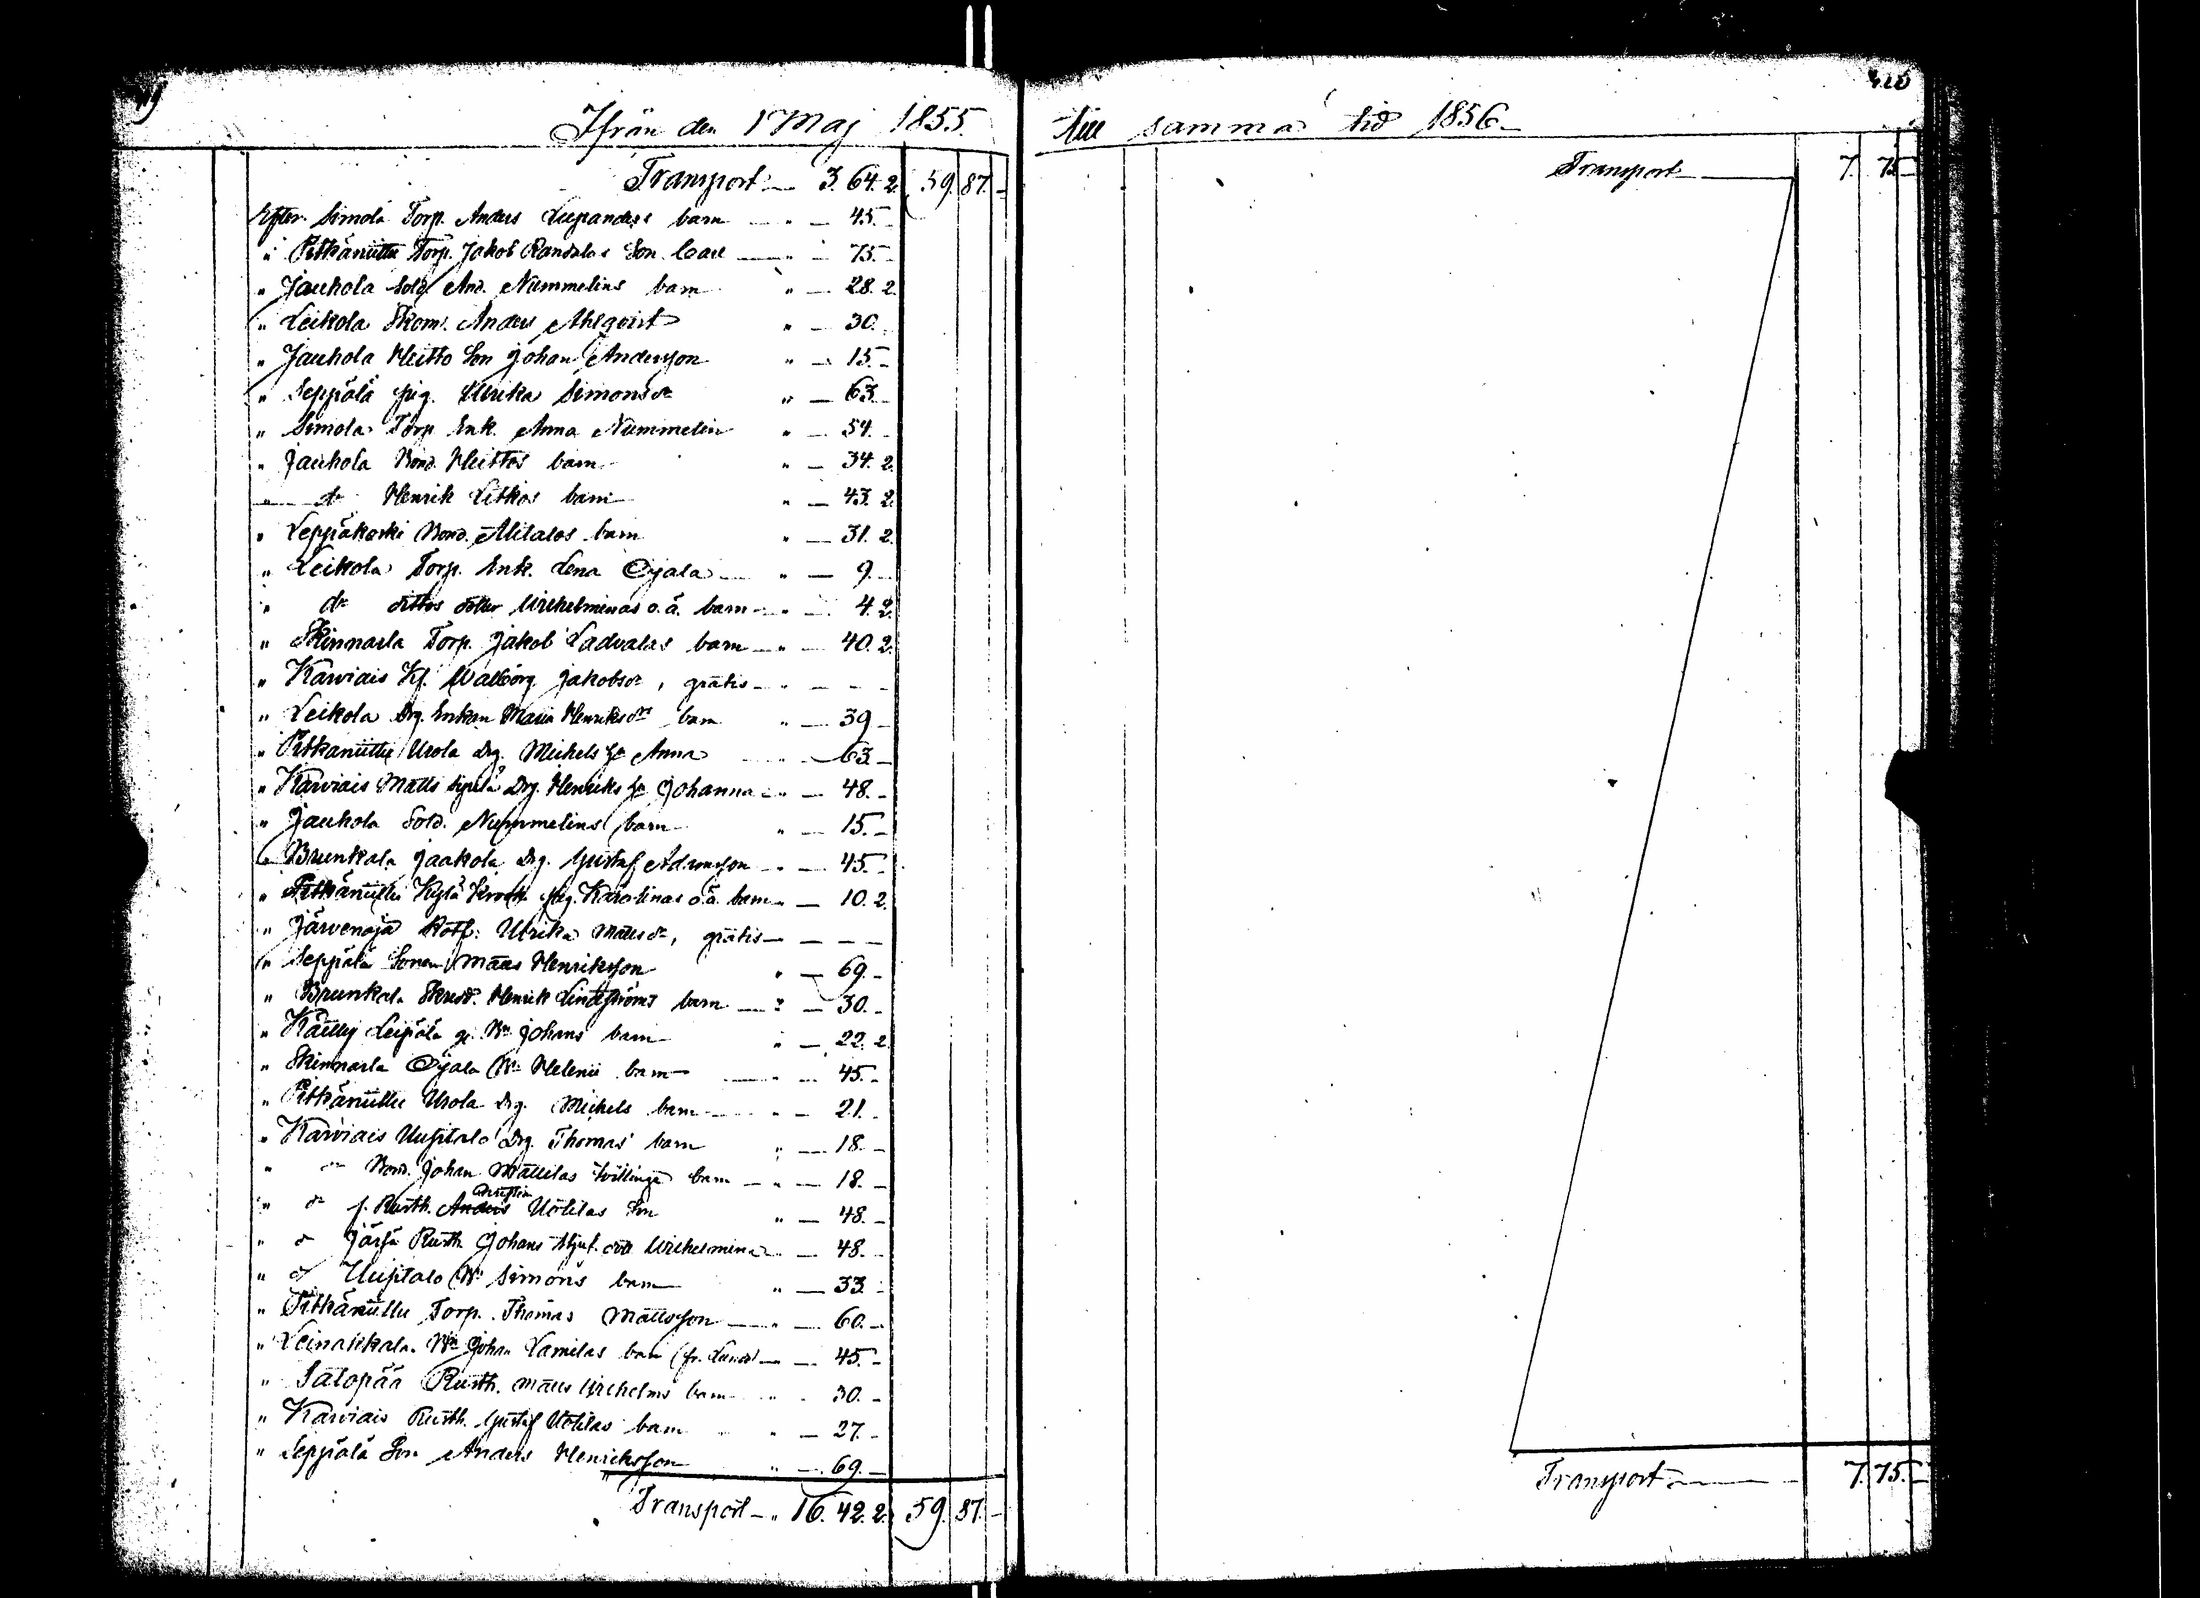 Ifrån den 1 Maj 1855.
Transport — 3. 64. 2. 59. 87. —
Efter Simola Torp. Anders Leupanders barn — " — 45. —
" Pitkäniittu Torp. Jakob Randalas Son Carl — " — 75. —
" Jauhola Sold. And. Nummelins barn " — 28. 2.
" Leikola Skom. Anders Ahlqvist " — 30. —
" Jauhola Heitto Son Johan Andersson " — 15. —
" Seppälä Pig. Ulrika Simonsdr " — 63. —
" Simola Torp. Enk. Anna Nummelin " — 54. —
" Jauhola Bond. Heittos barn " — 34. 2.
" — do Henrik Litkos barn " — 43. 2.
" Leppäkoski Bond. Alitalos barn " — 31. 2.
" Leikola Torp. Enk. Lena Ojala — " — 9. —
" do dittos dotter Wilhelminas o.ä. barn — " — 4. 2.
" Skinnarla Torp. Jakob Ladvalas barn — " — 40. 2.
" Karviais Kf. Walborg Jakobsdr, gratis — " — — —
" Leikola Drg. Enkan Maria Henriksdrs barn " — 39 —
" Pitkäniittu Urola Drg. Michels Hu Anna — 63. —
" Karviais Matts Drg. Henriks Hu Johanna — " — 48. —
" Jauhola Sold. Nummelins barn " — 15. —
" Brunkala Jaakola Drg. Gustaf Adamsson — " — 45. —
" Pitkäniittu Kylä Pig. Karolinas o.ä. barn " — 10. 2.
" Järvenoja Ulrika Mattsdr, gratis — — — —
" Seppälä Sonen Matts Henriksson " — 69. —
" Brunkala Skrädd. Henrik Lindströms barn — " — 30. —
" Leipälä Johans barn " — 22. 2.
" Skinnarla Ojala Helenii barn — " — 45. —
" Pitkäniittu Urola Drg. Michels barn — " — 21. —
" Karviais Uusitalo Drg. Thomas barn " — 18. —
" do Bond. Johan Mattilas tvillinge barn — " — 18. —
" do f. Rusth. Uotilas Son " — 48. —
" do Järfä Rusth. Johans Wilhelmina — " — 48. —
" do Uusitalo Simons barn " — 33. —
" Pitkäniittu Torp. Thomas Mattsson — " — 60. —
" Leinakkala Johan Lamilas barn — " — 45. —
" Salopää Rusth. Matts Wilhelms barn " — 30. —
" Karviais Rusth. Gustaf Uotilas barn " — 27. —
" Seppälä Son Anders Henriksson " — 69. —
Transport — " 16. 42. 2. 59. 87. —
420
till samma tid 1856 —
Transport — 7. 75 —
Transport — 7. 75. —